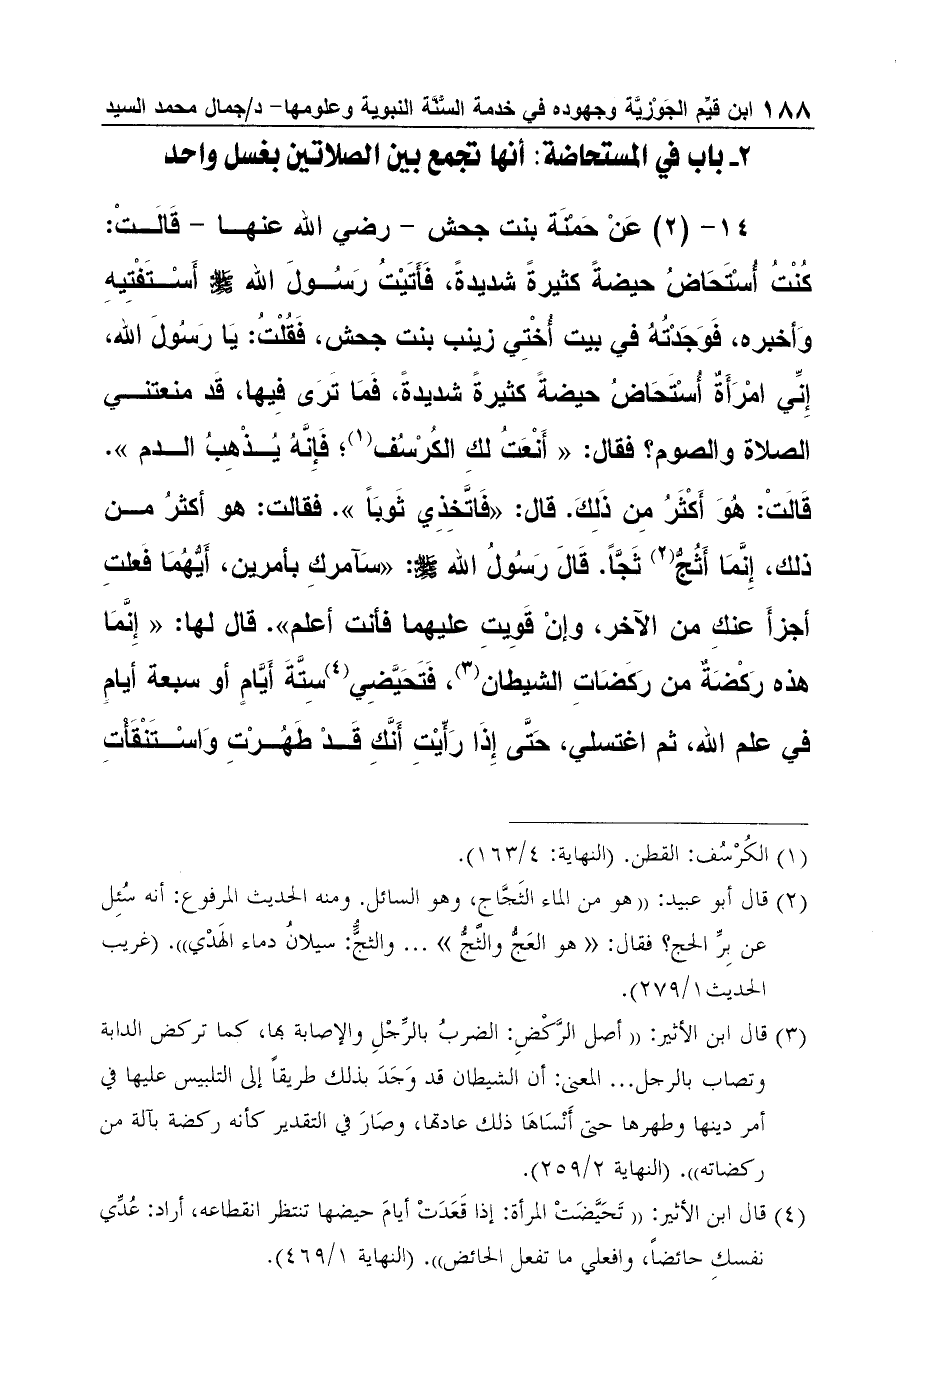 ١٨٨ ابن قيِّم الجَوْزِيَّة وجهوده في خدمة السُّنَّة النبوية وعلومها- د/جمال محمد السيد
٢- باب في المستحاضة: أنها تجمع بين الصلاتين بغسل واحد
١٤- (٢) عَنْ حَمْنَة بنت جحش - رضي الله عنهـــا - قَالَــتْ:
كُنْتُ أُسْتَحَاضُ حيضةً كثيرةً شديدةً، فَأَتَيْتُ رَسُــولَ الله ﷺ أَسْــتَفْتيه
وَأخبره، فَوَجَدْتُهُ في بيت أُخْتِي زينب بنت جحش، فَقُلْتُ: يَا رَسُولَ الله،
إِنِّي امْرَأَةٌ أُسْتَحَاضُ حيضةً كثيرةً شديدةً، فَمَا تَرَى فيها، قَد منعتنـــي
الصلاة والصوم؟ فقال: « أَنْعَتُ لك الكُرْسُف(١)؛ فَإِنَّهُ يُــذْهِبُ الــدم ».
قَالَتْ: هُوَ أَكْثَرُ مِن ذَلِكَ. قال: «فَاتَّخذي ثَوبَاً ». فقالت: هو أكثرُ مــن
ذلك، إِنَّمَا أَثُجُّ(٢) ثَجَّاً. قَالَ رَسُولُ الله ﷺ: «سَآمرك بأمرين، أَيُّهُمَا فَعلت
أجزأَ عنكِ من الآخر، وإنْ قَويتِ عليهما فأنت أعلم». قال لها: « إنَّمَا
هذه رَكْضَةٌ من ركَضَات الشيطان(٣)، فَتَحَيَّضي(٤)ستَّةَ أَيَّامٍ أو سبعة أيامٍ
في علم الله، ثم اغتسلي، حَتَّى إِذَا رَأَيْتِ أَنَّكِ قَــدْ طَهُــرْتِ وَاسْــتَنْقَأْت
(١) الكُرْسُف: القطن. (النهاية: ١٦٣/٤).
(٢) قال أبو عبيد: (( هو من الماء الثَجَّاج، وهو السائل. ومنه الحديث المرفوع: أنه سُئِل
عن بِرِّ الحج؟ فقال: « هو العَجُّ والثَّجُّ » ... والثجُّ: سيلانُ دماء الهَدْي)). (غريب
الحديث٢٧٩/١).
(٣) قال ابن الأثير: (( أصل الرَّكْضِ: الضربُ بالرِّجْلِ والإصابة بها، كما تركض الدابة
وتصاب بالرجل... المعنى: أن الشيطان قد وَجَدَ بذلك طريقاً إلى التلبيس عليها في
أمر دينها وطهرها حتى أَنْسَاهَا ذلك عادتها، وصَارَ في التقدير كأنه ركضة بآلة من
ركضاته)). (النهاية ٢٥٩/٢).
(٤) قال ابن الأثير: (( تَحَيَّضَتْ المرأة: إذا قَعَدَتْ أيامَ حيضها تنتظر انقطاعه، أراد: عُدِّي
نفسكِ حائضاً، وافعلي ما تفعل الحائض)). (النهاية ٤٦٩/١).